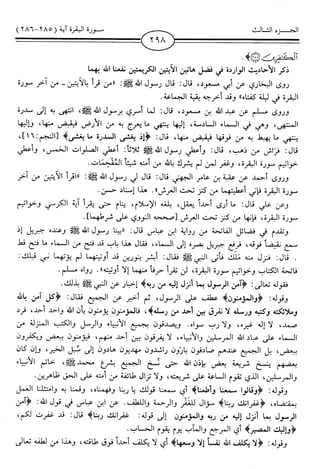 الجـــزء الثـالـث
٢٩٨
سورة البقرة آية (٢٨٥-٢٨٦)
ذكر الأحاديث الواردة في فضل هاتين الآيتين الكريمتين نفعنا الله بهما
روى البخاري عن أبي مسعود، قال: قال رسول الله ﷺ: «من قرأ بالآيتين ـ من آخر سورة
البقرة في ليلة كفتاه» وقد أخرجه بقية الجماعة.
وروى مسلم عن عبد الله بن مسعود، قال: لما أسري برسول الله ﷺ، انتهى به إلى سدرة
المنتهى، وهي في السماء السادسة، إليها ينتهي ما يعرج به من الأرض فيقبض منها، وإليها
ينتهي ما يهبط به من فوقها فيقبض منها، قال: ﴿إذ يغشى السدرة ما يغشى﴾ [النجم:١٦]،
قال: فراش من ذهب، قال: وأعطي رسول الله ﷺ ثلاثاً: أعطي الصلوات الخمس، وأعطي
خواتيم سورة البقرة، وغفر لمن لم يشرك بالله من أمته شيئاً المُقْحِمات.
وروى أحمد عن عقبة بن عامر الجهني قال: قال لي رسول الله ﷺ: «اقرأ الآيتين من آخر
سورة البقرة فإني أعطيتهما من كنز تحت العرش». هذا إسناد حسن.
وعن علي قال: ما أرى أحداً يعقل، بلغه الإسلام، ينام حتى يقرأ آية الكرسي وخواتيم
سورة البقرة، فإنها من كنز تحت العرش [صححه النووي على شرطهما].
وتقدم في فضائل الفاتحة من رواية ابن عباس قال: «بينا رسول الله ﷺ وعنده جبريل إذ
سمع نقيضاً فوقه، فرفع جبريل بصره إلى السماء، فقال هذا باب قد فتح من السماء ما فتح قط
، قال: فنزل منه مَلَك فأتى النبي ﷺ فقال: أبشر بنورين قد أوتيتهما لم يؤتهما نبي قبلك:
فاتحة الكتاب وخواتيم سورة البقرة، لن تقرأ حرفاً منهما إلا أوتيته». رواه مسلم.
فقوله تعالى: ﴿آمن الرسول بما أنزل إليه من ربه﴾ إخبار عن النبي ﷺ بذلك.
وقوله: ﴿والمؤمنون﴾ عطف على الرسول، ثم أخبر عن الجميع فقال: ﴿كل آمن بالله
وملائكته وكتبه ورسله لا نفرق بين أحد من رسله﴾، فالمؤمنون يؤمنون بأن الله واحد أحد، فرد
صمد، لا إله غيره، ولا رب سواه. ويصدقون بجميع الأنبياء والرسل والكتب المنزلة من
السماء على عباد الله المرسلين والأنبياء، لا يفرقون بين أحد منهم، فيؤمنون ببعض ويكفرون
ببعض، بل الجميع عندهم صادقون بارّون راشدون مهديون هادون إلى سُبل الخير، وإن كان
بعضهم ينسخ شريعة بعض بإذن الله حتى نُسخ الجميع بشرع محمد ﷺ، خاتم الأنبياء
والمرسلين، الذي تقوم الساعة على شريعته، ولا تزال طائفة من أمته على الحق ظاهرين.
وقوله: ﴿وقالوا سمعنا وأطعنا﴾ أي سمعنا قولك يا ربنا وفهمناه، وقمنا به وامتثلنا العمل
بمقتضاه، ﴿غفرانك ربنا﴾ سؤال للغَفْر والرحمة واللطف. عن ابن عباس في قول الله: ﴿آمن
الرسول بما أنزل إليه من ربه والمؤمنون إلى قوله: غفرانك ربنا﴾ قال: قد غفرت لكم،
﴿وإليك المصير﴾ أي المرجع والمآب يوم يقوم الحساب.
وقوله: ﴿لا يكلف الله نفساً إلا وسعها﴾ أي لا يكلف أحداً فوق طاقته، وهذا من لطفه تعالى